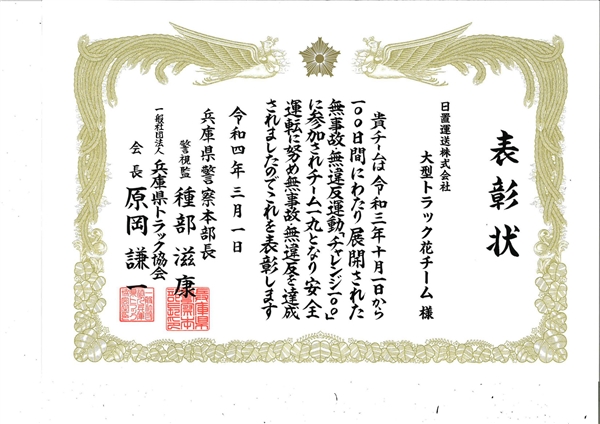 表彰状
日置運送株式会社
大型トラック花チーム 様
貴チームは令和三年十月一日から
一〇〇日間にわたり展開された
無事故・無違反運動「チャレンジ一〇〇」
に参加されチーム一丸となり安全
運転に努め無事故・無違反を達成
されましたのでこれを表彰します
令和四年三月一日
兵庫県警察本部長
警視監 種部滋康
一般社団法人 兵庫県トラック協会
会長 原岡謙一